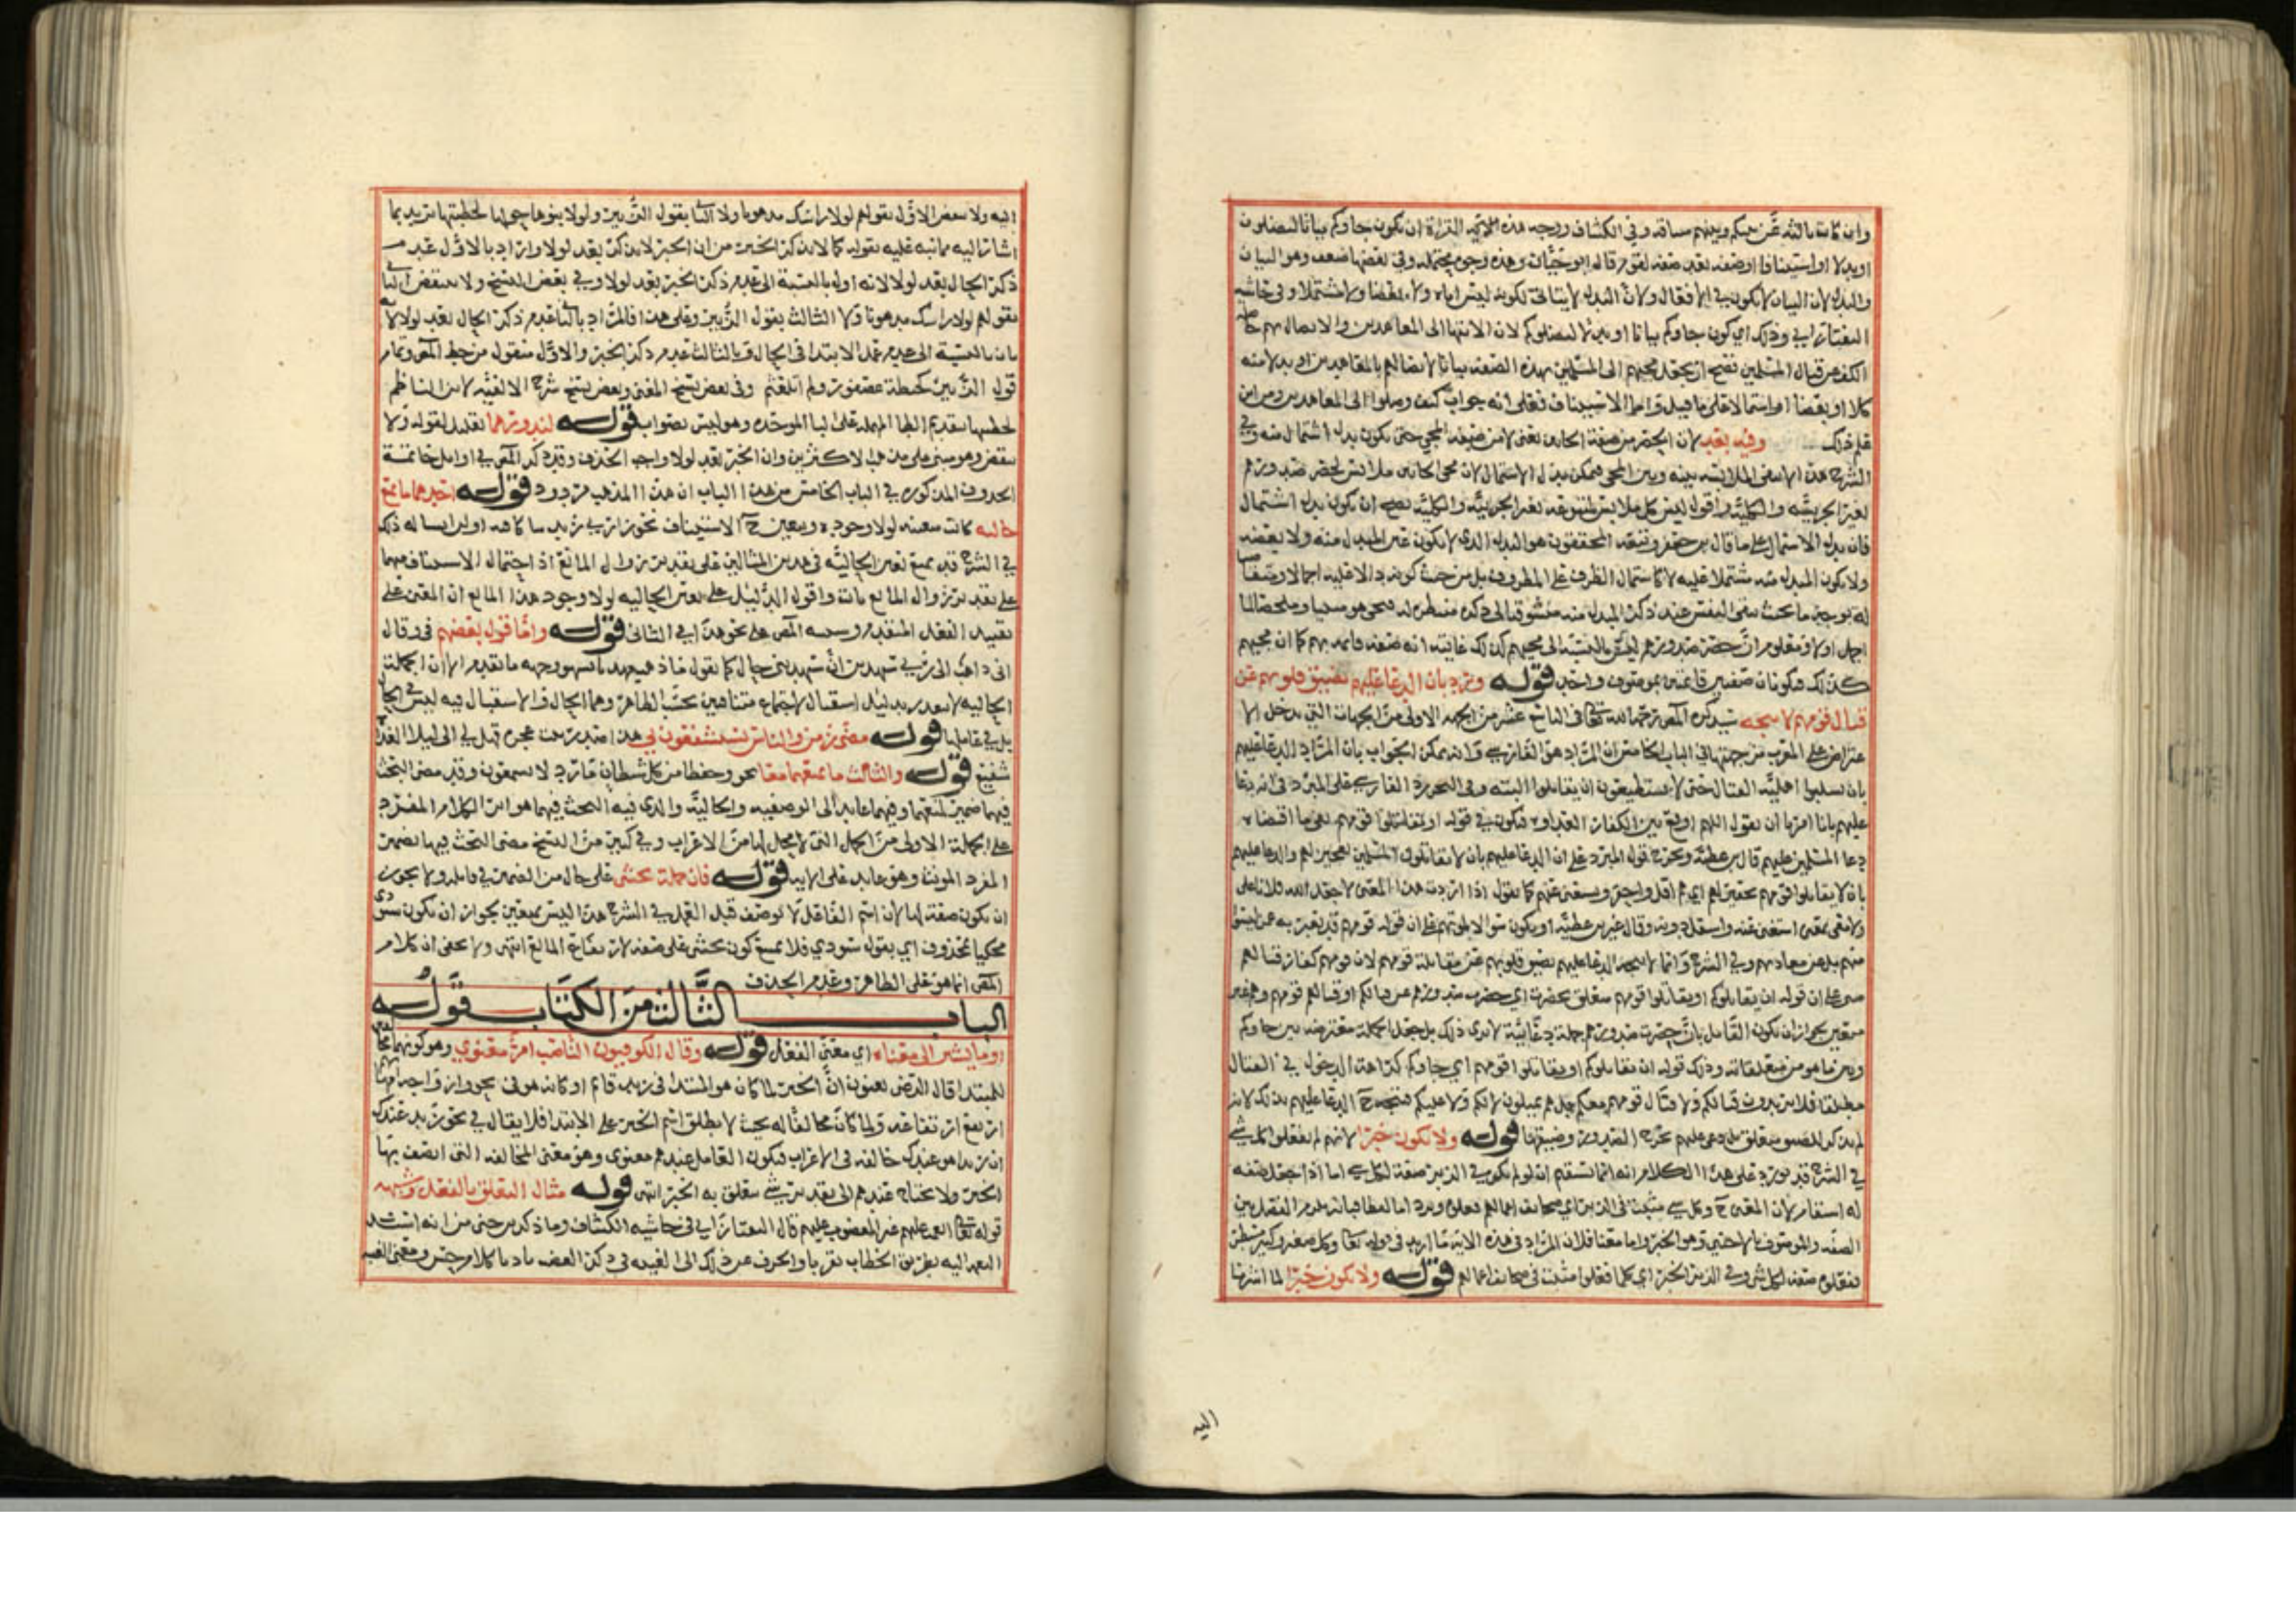 وان كانت بالنسبة عن بينكم وبينهم وفي الكشاف ووجه هذه القراءة ان يكون جاوكم بيانا ليصلون
او بدلا او استينافا او صفة بعد صفة لقوم قاله ابو حيان وهذه وجوه محتملة وفي بعضها ضعف وهو البيان
والبدل لان البيان لا يكون في الافعال ولان البدل لا يتاتى لكونه ليس اياه ولا بعضا ولا مشتملا وفي حاشية
التفتازاني وذلك اي كون جاوكم بيانا او بدلا ليصلوكم لان الانتها الى المعاهدين والاتصال بهم حاصله
الكف عن قتال المسلمين فصح ان يجعل مجيهم الى المسلمين بهذه الصفة بيانا لاتصالهم بالمعاهدين او بدلا منه
كلا او بعضا او اشتمالا على ما قيل واما الاستيناف فعلى انه جواب كيف وصلوا الى المعاهدين ومن اين
علم ذلك وفيه بعد لان الحصر من صفة الجايين يعني لا من صفة المجي حتى يكون بدل اشتمال منه وفي
الشرح هذا لا ينفي الملابسة بينه وبين المجي فيمكن بدل الاشتمال لان مجي الجايين ملابس لحصر صدورهم
لغير الجزئية والكلية واقول ليس كل ملابس لمتبوعه بغير الجزئية والكلية يصح ان يكون بدل اشتمال
فان بدل الاشتمال على ما قال بن جعفر وتبعه المحققون هو البدل الذي لا يكون عين المبدل منه ولا بعضه
ولا يكون المبدل منه مشتملا عليه لا كاشتمال الظرف على المظروف بل من حيث كونه دالا عليه اجمالا ومتقاضيا
له بوجه ما بحيث تبقى النفس عند ذكر المبدل منه متشوقة الى ذكره منتظرة له فيجي هو مبينا وملخصا لما
اجمل اولا ومعلوم ان حصرت صدورهم ليس بالنسبة الى مجيهم كذلك غايته انه صفة قايمة بهم كما ان مجيهم
كذلك فيكونان صفتين قايمتين بموصوف واحد قوله ورد بان الدعا عليهم بتضييق قلوبهم عن
قتال قومهم لا يتجه سيذكره المص رحمه الله تعالى في التاسع عشر من الجهة الاولى من الجهات التي يدخل الا
عتراض على المعرب من جهتها في الباب الخامس ان المراد هو الفارسي وانه يمكن الجواب بان المراد الدعا عليهم
بان يسلبوا اهلية القتال حتى لا يستطيعون ان يقاتلوا البتة وفي البحر رد الفارسي على المبرد في انه دعا
عليهم بانا امرنا ان نقول اللهم اوقع بين الكفار العداوة فيكون في قوله او يقاتلوا قومهم نفي ما اقتضاه
دعا المسلمين عليهم قال بن عطية ويخرج قول المبرد على ان الدعا عليهم بان لا يقاتلوا المسلمين تعجيز لهم والدعا عليهم
بان لا يقاتلوا قومهم تحقير لهم اي هم اقل واحقر ويستغنى عنهم كما تقول اذا اردت هذا المعنى لا جعل الله فلانا علي
ولا معي بمعنى استغني عنه واستقل دونه وقال غير بن عطية او يكون سوالا لموتهم على ان قوله قومهم قد يعبر به عمن ليسوا
منهم بل عن معاديهم وفي الشرح وانما لا يتجه الدعا عليهم بضيق قلوبهم عن مقاتلة قومهم لان قومهم كفار فقتالهم
مبني على ان قوله ان يقاتلوكم او يقاتلوا قومهم متعلق بحصرت اي حصرت صدورهم عن قتالكم او قتالهم قومهم وهو غير
متعين بجواز ان يكون القايل بان حصرت صدورهم جملة دعائية لا يرى ذلك بل يجعل الجملة معترضة بين جاوكم
وبين ما هو من متعلقاته وذلك قوله ان يقاتلوكم او يقاتلوا قومهم اي جاوكم كراهة الدخول في القتال
مطلقا فلا يريدون قتالكم ولا قتال قومهم معكم بل هم يميلون لا لكم ولا عليكم فيتجه ح الدعا عليهم بذلك لانه
لم يذكر للضيق متعلق بل دعي عليهم بحرج الصدور وضيقها قوله ولا يكون خبرا لانهم لم يفعلوا كل شي
في الشرح قد يورد على هذا الكلام انه انما يستقيم ان لو لم يكن في الزبر صفة لكل شي اما اذا جعل صفة
له استقام لان المعنى ح وكل شي مثبت في الزبر اي صحايف اعمالهم فعلوه
الصفة والموصوف بالاجنبي وهو الخبر واما معنا فلان المراد في هذه الاية ما اريد في قوله تعالى وكل صغير وكبير مستطر
ففعلوه صفة لكل شي وفي الزبر الخبر اي كلما فعلوا مثبت في صحايف اعمالهم قوله ولا يكون خبرا لما اشرنا
اليه
اليه ولا ينقض الاول بقولهم لولا راسك مدهونا ولا الثاني بقول الزبير ولولا بنوها حولها لخبطتها يريد بما
اشار اليه ما نبه عليه بقوله كما لا يذكر الخبر من ان الخبر لا يذكر بعد لولا واراد بالاول عدم
ذكر الحال بعد لولا لانه اول بالنسبة الى عدم ذكر الخبر بعد لولا وفي بعض النسخ ولا ينتقض الثاني
بقولهم لولا راسك مدهونا ولا الثالث بقول الزبير وعلى هذا فالمراد بالثاني عدم ذكر الحال بعد لولا لانه
ثان بالنسبة الى عدم عمل الابتدا في الحال وبالثالث عدم ذكر الخبر والاول منقول من خط المص وتمام
قول الزبير كخبطة عصفور ولم اتلعثم وفي بعض نسخ المغني وبعض نسخ شرح الالفية لابن الناظم
لخطبها بتقديم الطا المهملة على البا الموحدة وهو ليس بصواب قوله لندورهما تعليل لقوله ولا
ينقض وهو مبني على مذهب الاكثرين وان الخبر بعد لولا واجب الحذف وقد ذكر المص في اوايل خاتمة
الحذوف المذكورة في الباب الخامس من هذا الباب ان هذا المذهب مردود قوله احدهما ما يمنع
حاليه كانت متعينة لولا وجوده ويتعين ح الاستيناف نحو زارني زيد ساكافيه او لن انسى له ذلك
في الشرح قد يمنع تعين الحالية في هذين المثالين على تقدير زوال المانع اذ احتمال الاستيناف فيهما
على تقدير زوال المانع ثابت واقول الدليل على تعين الحالية لولا وجود هذا المانع ان المعنى على
تقييد الفعل المتقدم وسينبه المص على نحو هذا في الثاني قوله واما قول بعضهم في وقال
اني ذاهب الى ربي سيهدين ان سيهدين حال كما تقول سافر هب مهديا فسهو وجهه ما تقدم الا ان الجملة
الحالية لا تصدر بدليل استقبال لاجتماع متنافيين بحسب الظاهر وهما الحال والاستقبال فيه ليس في الحال
بل في عاملها قوله مضى زمن والناس يستشفعون بي هذا صدر بيت عجزه فهل لي الى ليلى الغداة
شفيع قوله والثالث ما يمنعهما معا نحو وحفظا من كل شيطان مارد لا يسمعون وقد مضى البحث
فيها ضمير لمنعهما وفيهما عايد الى الوصفية والحالية والذي فيه البحث فيهما هو اثر الكلام المفرد
على الجملة الاولى من الجمل التي لا محل لها من الاعراب وفي كثير من النسخ مضى البحث فيها بضمير
المفرد المونث وهو عايد على الاية قوله فان جملة تخشى على حال من الضمير في قايله ولا يجوز
ان يكون صفة لها لان اسم الفاعل لا يوصف قبل العمل في الشرح هذا ليس بمتعين بجواز ان يكون ستودي
محكيا بمحذوف اي يقول ستودي فلا يمتنع كون تخشى على صفة لارتفاع المانع انتهى ولا يخفى ان كلام
المص انما هو على الظاهر وعدم الحذف
الباب الثالث من الكتاب قوله
او ما يشير الى معناه اي معنى الفعل قوله وقال الكوفيون الناصب امر معنوي وهو كونهما مخالفين
للمبتدا قال الرضى يعنون ان الخبر لما كان هو المبتدا في زيد قايم او كانه هو في نحو وازواجه امهاتهم
ارتفع ارتفاعه ولما كان مخالفا له بحيث لا يطلق اسم الخبر على الابتدا فلا يقال في نحو زيد عندك
ان زيدا هو عندك خالفه في الاعراب فيكون العامل عندهم معنوي وهو معنى المخالفة التي اتصف بها
الخبر ولا يحتاج عندهم الى تقدير شي يتعلق به الخبر انتهى قوله مثال التعلق بالفعل وشبهه
قوله تعالى انعمت عليهم غير المغضوب عليهم قال التفتازاني في حاشية الكشاف وما ذكر بن جني من انه اسند
النعمة اليه بطريق الخطاب تقربا وانحرف عن ذلك الى الغيبة في ذكر الغضب تادبا كلام حسن ومعنى الغيبة